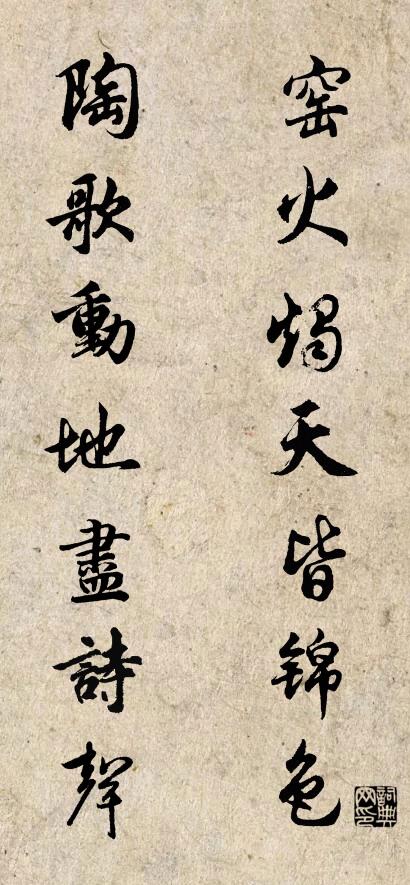 窑火燭天皆锦色
陶歌動地盡詩聲
詞典網印